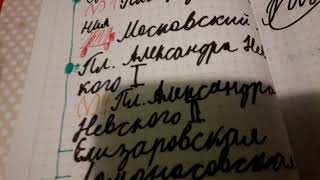 ная
Московский
Пл. Александра Нев
кого I
Пл. Александра
Невского II
Елизаровская
Ломоносовская